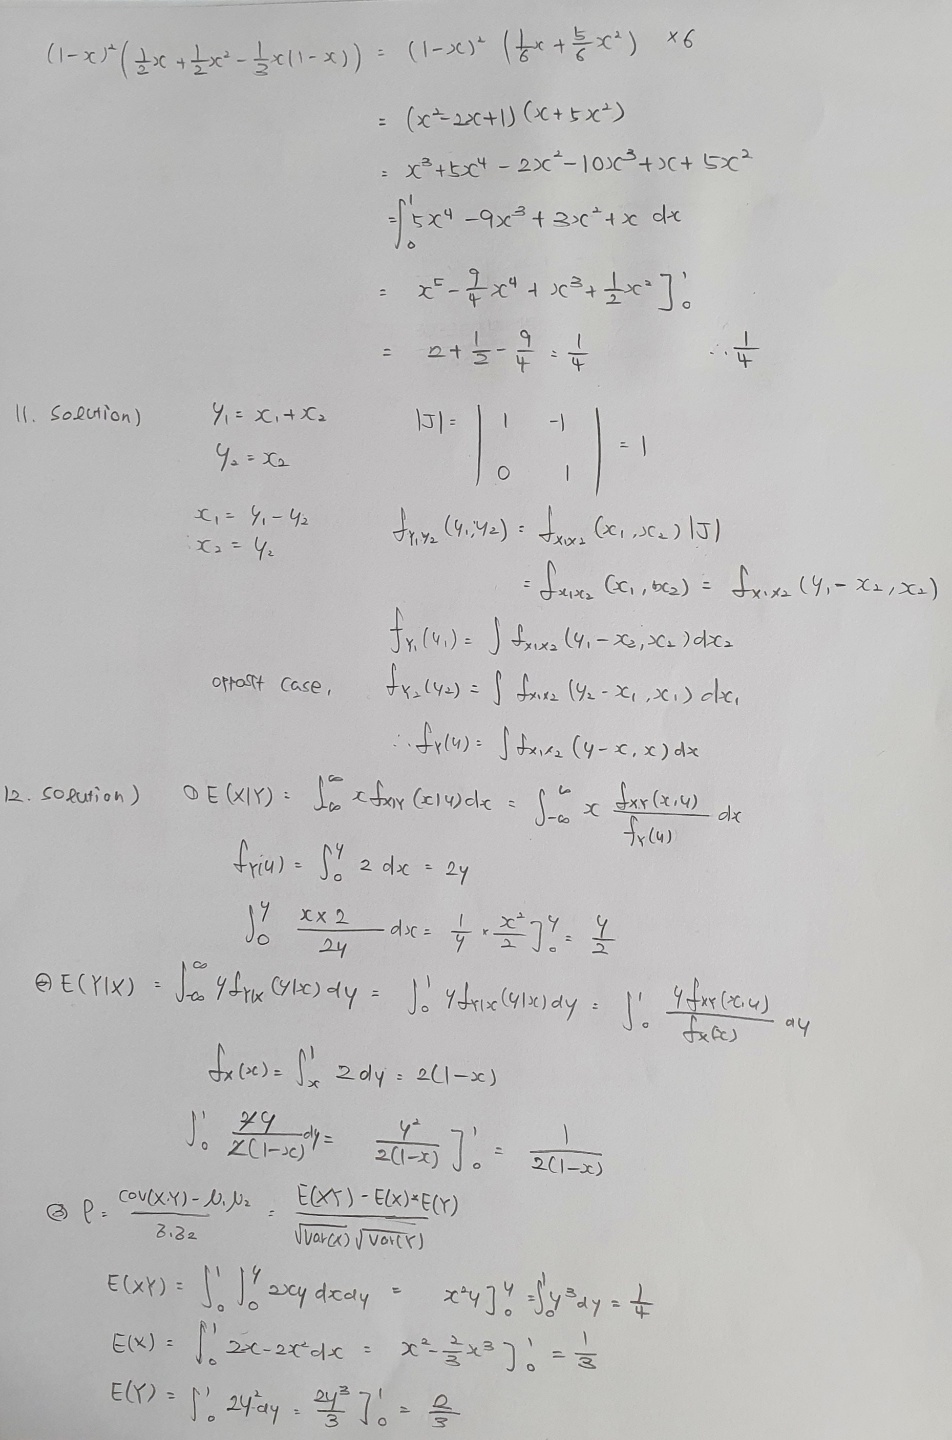 (1-x)²(½x + ½x² - ⅓x(1-x)) = (1-x)² (⅙x + ⅚x²) ×6
= (x²-2x+1)(x+5x²)
= x³+5x⁴ - 2x² - 10x³ + x + 5x²
= ∫₀¹ 5x⁴ - 9x³ + 3x² + x dx
= x⁵ - 9/4 x⁴ + x³ + ½x² ]₀¹
= 2 + 1/2 - 9/4 = 1/4 ∴ 1/4
11. solution) y₁ = x₁+x₂ |J| = | 1 -1 | = 1
y₂ = x₂ | 0 1 |
x₁ = y₁-y₂ f_Y₁Y₂ (y₁,y₂) = f_X₁X₂ (x₁,x₂) |J|
x₂ = y₂
= f_X₁X₂ (x₁,x₂) = f_X₁X₂ (y₁-x₂, x₂)
f_Y₁(y₁) = ∫ f_X₁X₂ (y₁-x₂, x₂) dx₂
oppost case, f_Y₂(y₂) = ∫ f_X₁X₂ (y₂-x₁, x₁) dx₁
∴ f_Y(y) = ∫ f_X₁X₂ (y-x, x) dx
12. solution) ① E(X|Y) = ∫₋∞^∞ x f_X|Y (x|y) dx = ∫₋∞^∞ x f_XY(x,y)/f_Y(y) dx
f_Y(y) = ∫₀^y 2 dx = 2y
∫₀^y x×2/2y dx = 1/y × x²/2 ]₀^y = y/2
② E(Y|X) = ∫₋∞^∞ y f_Y|X (y|x) dy = ∫₀¹ y f_Y|X (y|x) dy = ∫₀¹ y f_XY(x,y)/f_X(x) dy
f_X(x) = ∫ₓ¹ 2 dy = 2(1-x)
∫₀¹ 2y/2(1-x) dy = y²/2(1-x) ]₀¹ = 1/2(1-x)
③ ρ = cov(X,Y) - μ₁μ₂/3,32 = E(XY) - E(X)*E(Y)/√Var(X) √Var(Y)
E(XY) = ∫₀¹ ∫₀^y 2xy dxdy = x²y ]₀^y = ∫₀¹ y³ dy = 1/4
E(X) = ∫₀¹ 2x-2x² dx = x² - 2/3 x³ ]₀¹ = 1/3
E(Y) = ∫₀¹ 2y² dy = 2y³/3 ]₀¹ = 2/3